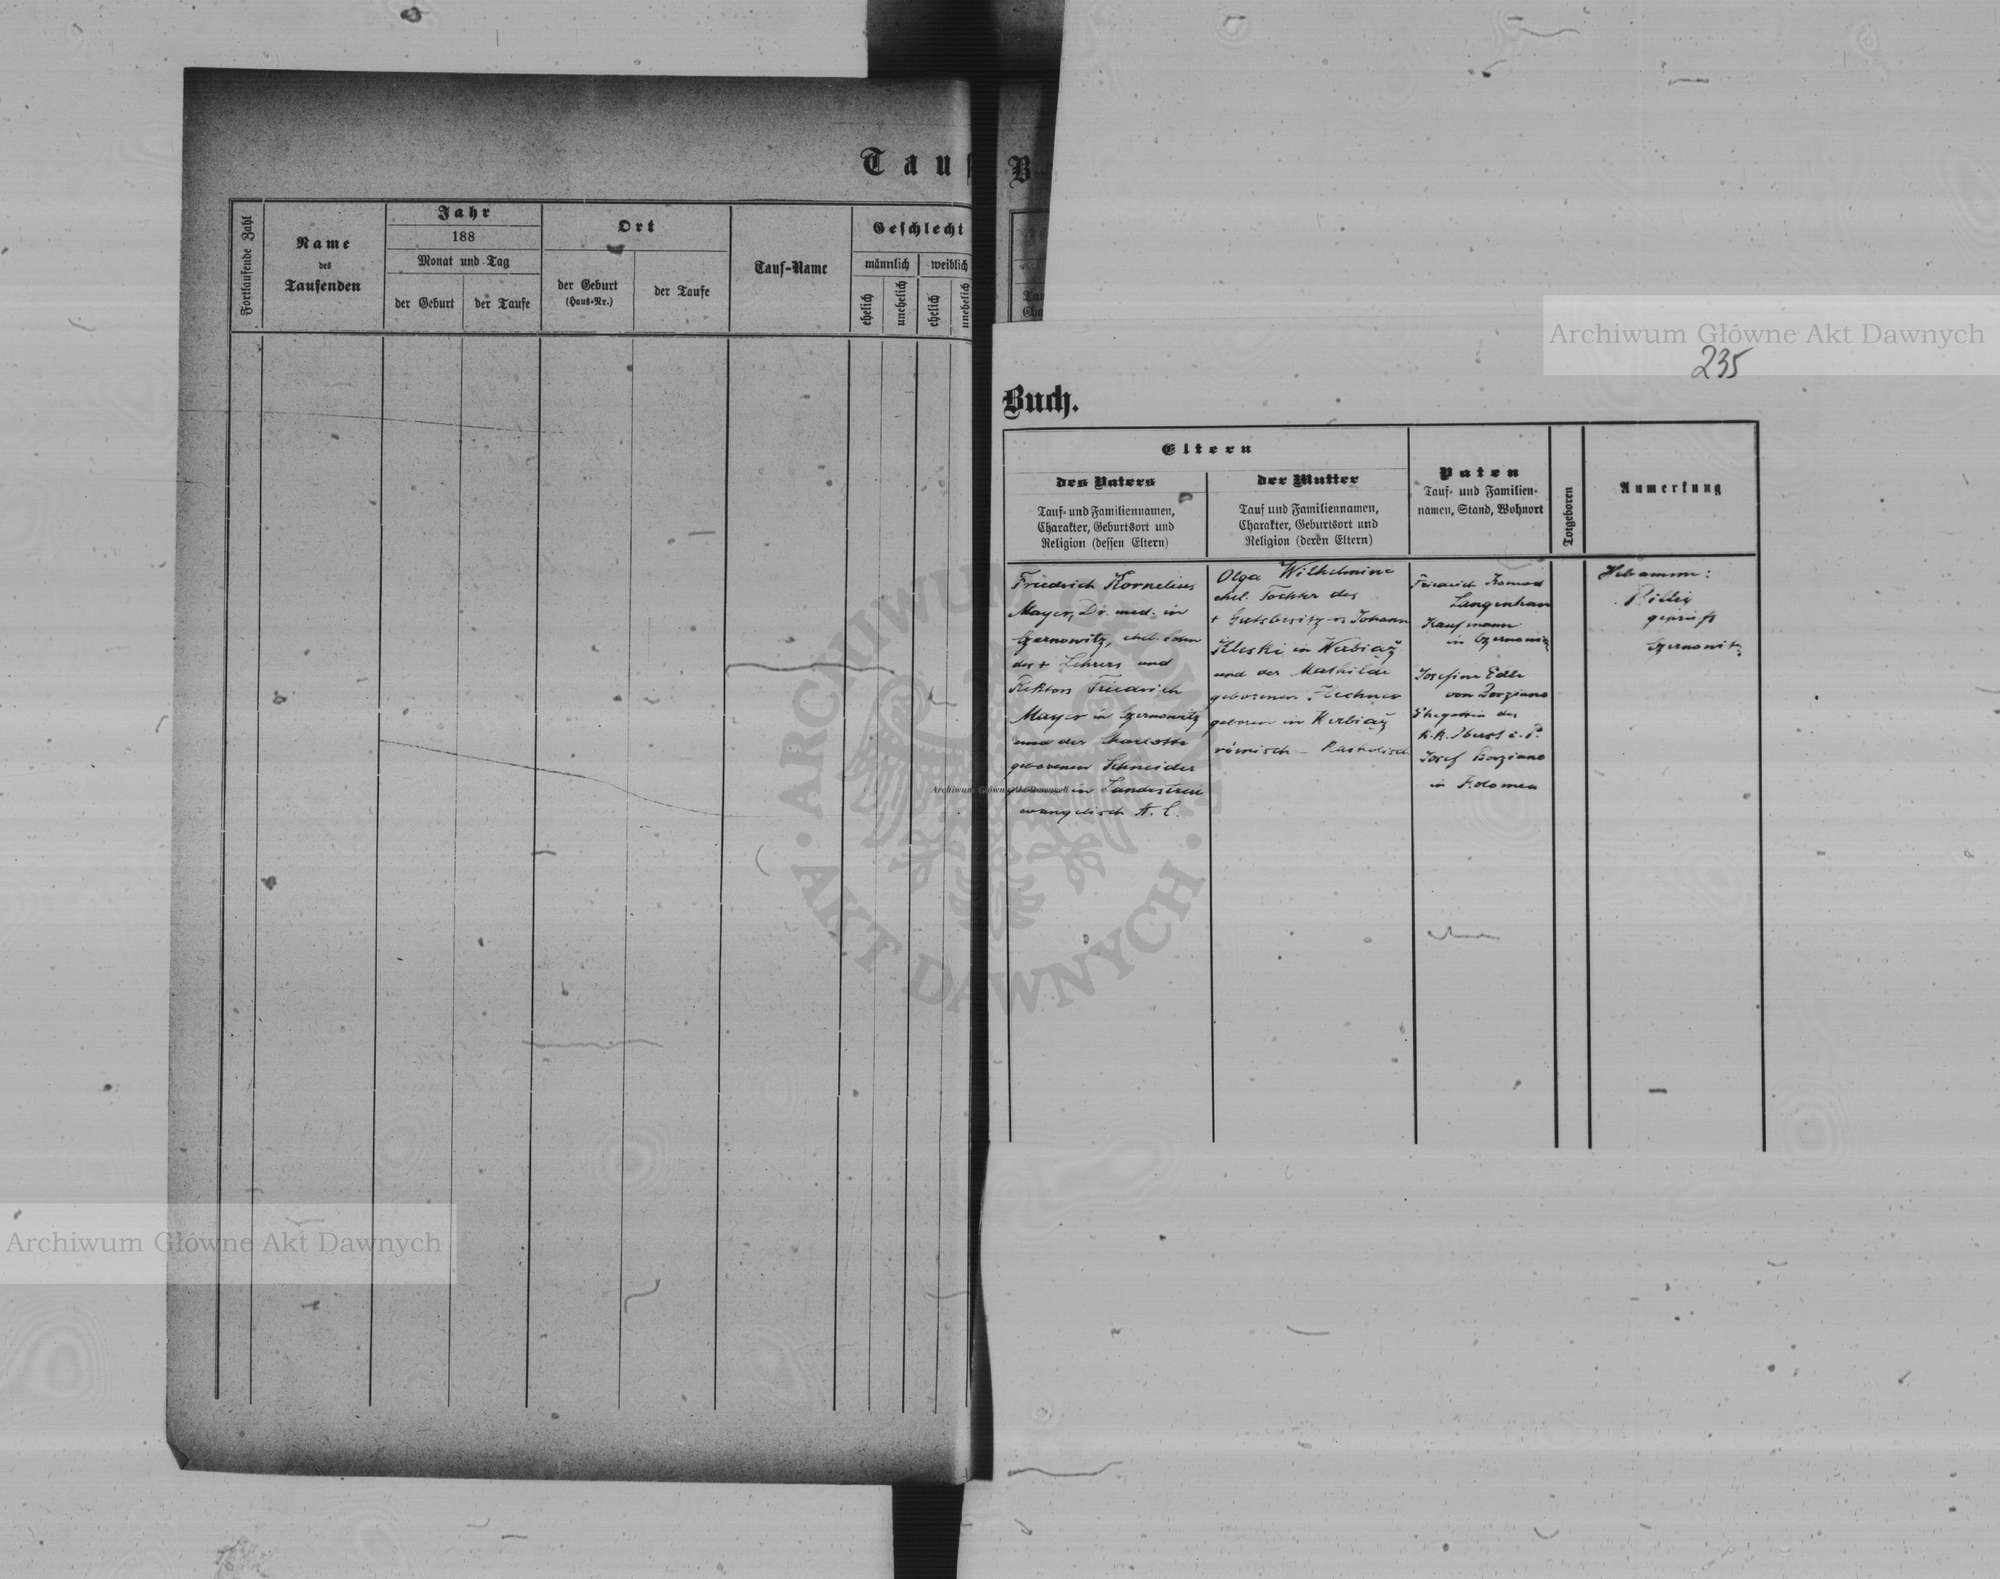 Tauf
B
Fortlaufende Zahl
Name
des
Taufenden
Jahr
188
Monat und Tag
der Geburt
der Taufe
Ort
der Geburt
(Haus-Nr.)
der Taufe
Tauf-Name
Geschlecht
männlich
weiblich
ehelich
unehelich
ehelich
unehelich
Archiwum Główne Akt Dawnych
235
Buch.
Eltern
des Vaters
Tauf- und Familiennamen,
Charakter, Geburtsort und
Religion (dessen Eltern)
der Mutter
Tauf und Familiennamen,
Charakter, Geburtsort und
Religion (deren Eltern)
Paten
Tauf- und Familien-
namen, Stand, Wohnort
Totgeboren
Anmerkung
Friedrich Kornelius
Mayer, Dr. med. in
Czernowitz, ehel. Sohn
des + Lehrers und
Rektors Friedrich
Mayer in Czernowitz
und der Charlotte
geborenen Schneider
in Landestreu
evangelisch A. C.
Olga Wilhelmine
ehel. Tochter des
+ Gutsbesitzers Johann
Kleski in Werbiąż
und der Mathilde
geborenen Zechner
geboren in Werbiąż
römisch - Katholisch
Friedrich Konrad
Langenhan
Kaufmann
in Czernowitz
Josefine Edle
von Borziano
Ehegattin des
k.k. Oberst i. P.
Josef Borziano
in Kolomea
Hebamme:
geprüft
Czernowitz
ARCHIWUM GŁÓWNE
AKT DAWNYCH
Archiwum Główne Akt Dawnych
Archiwum Główne Akt Dawnych